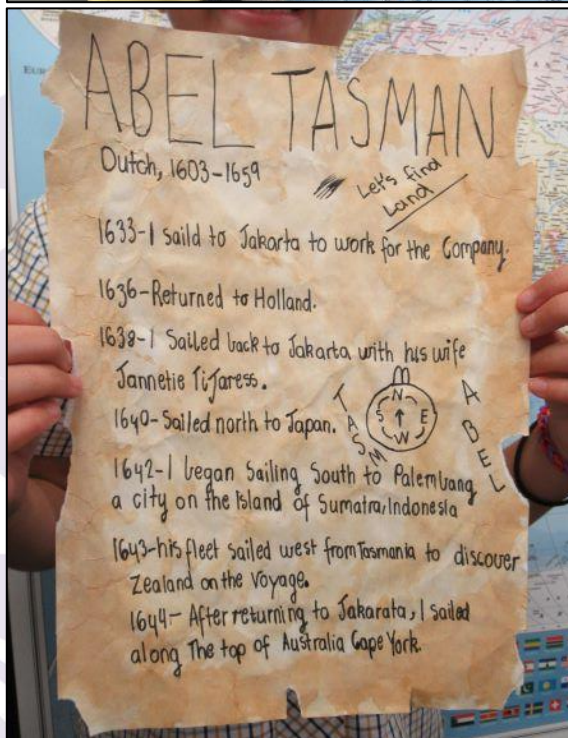 ABEL TASMAN
Dutch, 1603-1659
Let's find
Land
1633-I saild to Jakarta to work for the Company.
1636-Returned to Holland.
1638-I Sailed back to Jakarta with his wife
Jannetie TiJaress.
1640-Sailed north to Japan.
TASM
N
S E
W
ABEL
1642-I began Sailing South to Palembang
a city on the Island of Sumatra, Indonesia
1643-his fleet sailed west from Tasmania to discover
Zealand on the Voyage.
1644- After returning to Jakarata, I sailed
along The top of Australia Cape York.